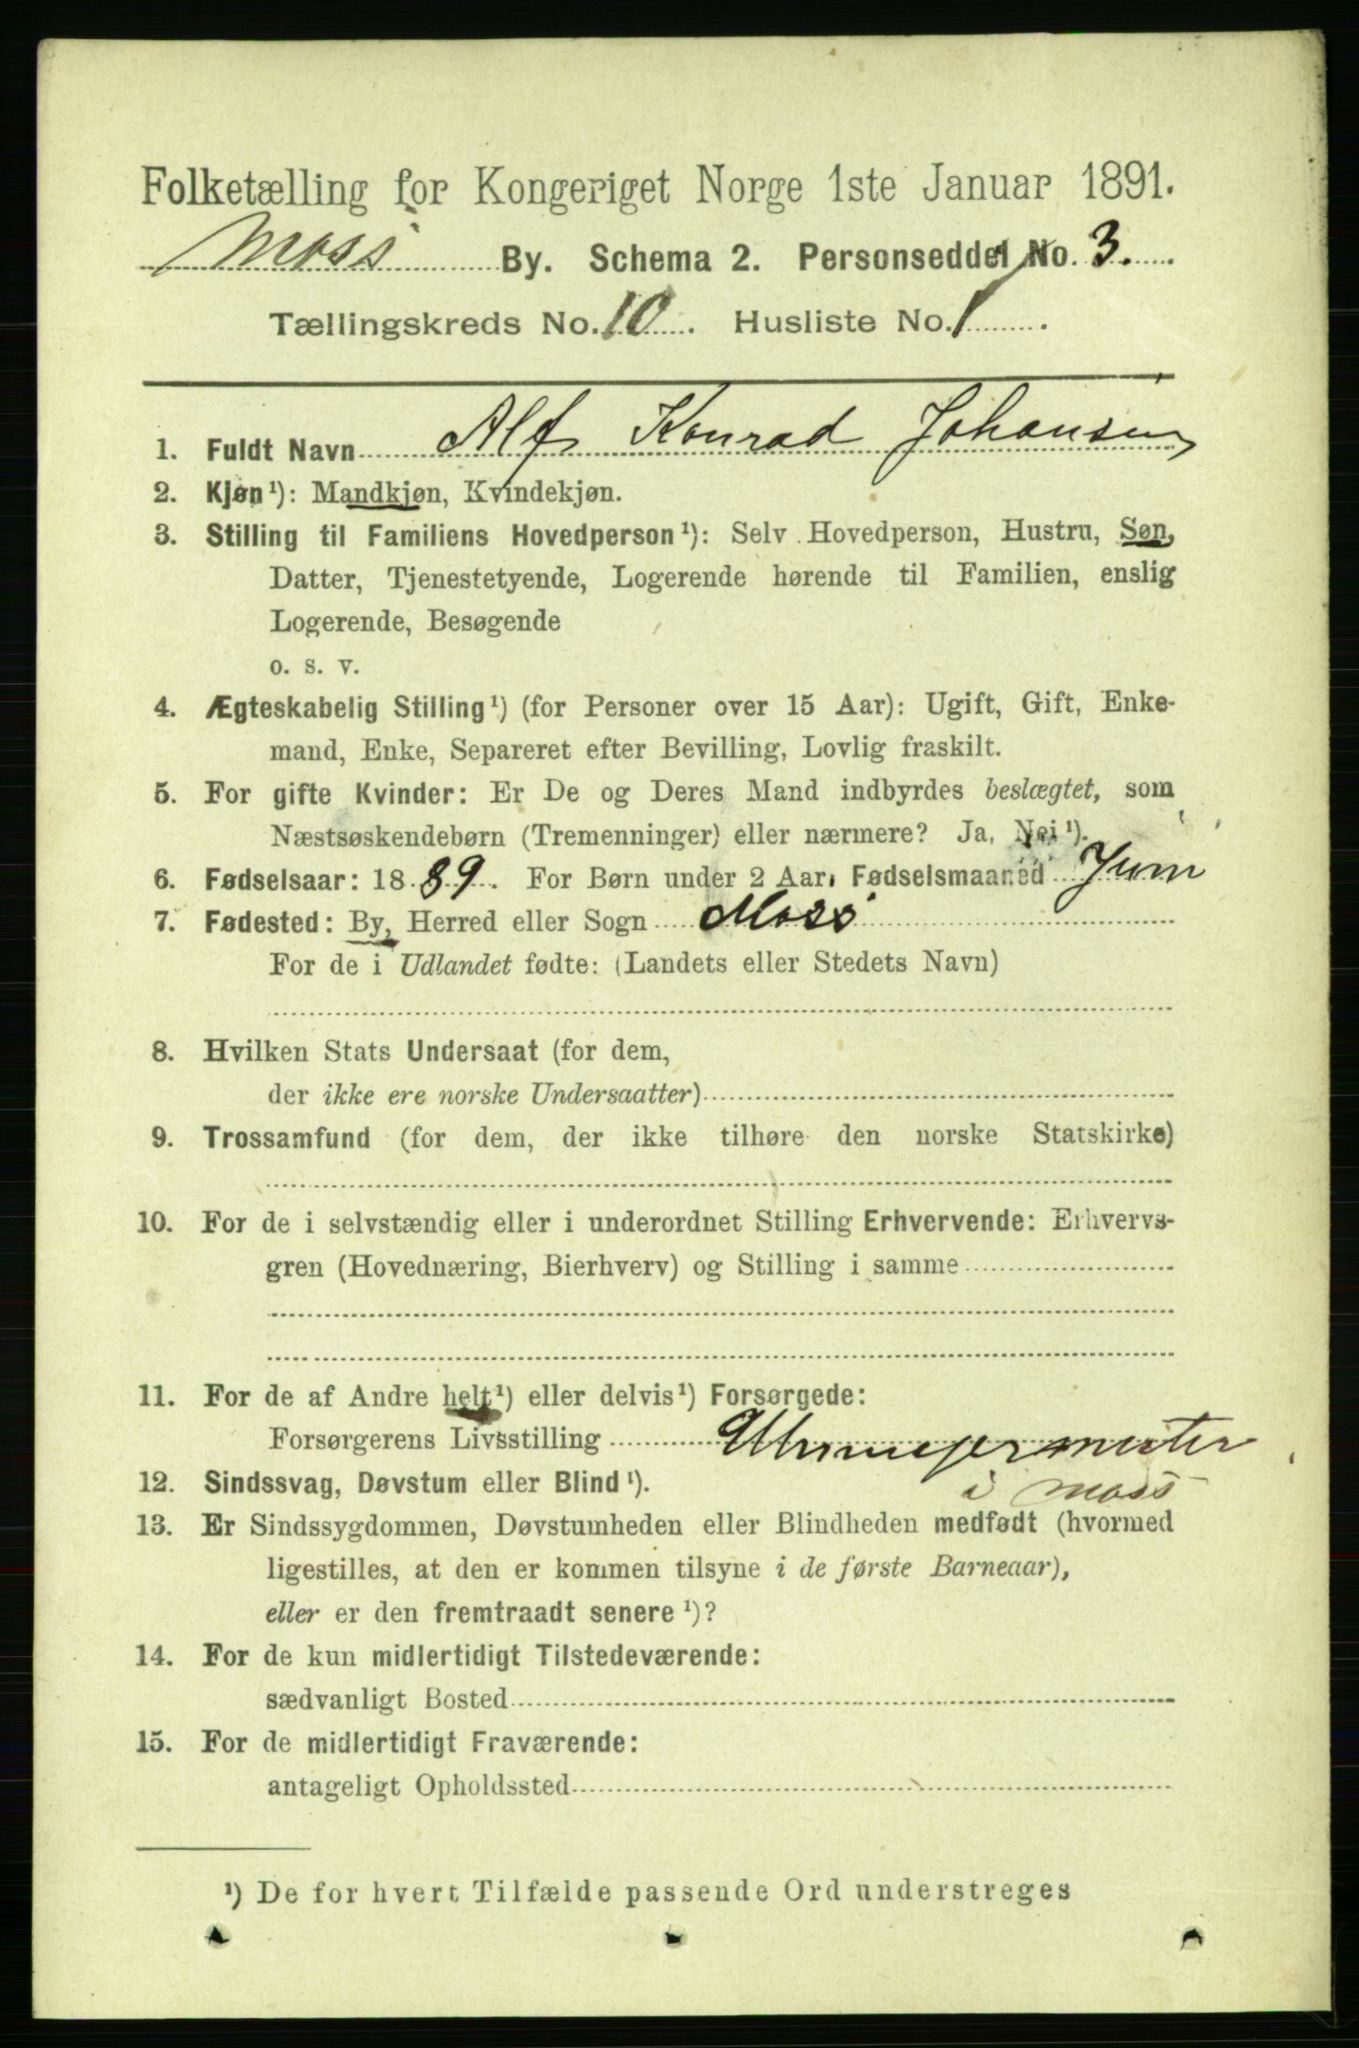 Folketælling for Kongeriget Norge 1ste Januar 1891.
Moss By. Schema 2. Personseddel No. 3.
Tællingskreds No. 10. Husliste No. 1.
1. Fuldt Navn Alf Konrad Johansen
2. Kjøn¹): Mandkjøn, Kvindekjøn.
3. Stilling til Familiens Hovedperson¹): Selv Hovedperson, Hustru, Søn,
Datter, Tjenestetyende, Logerende hørende til Familien, enslig
Logerende, Besøgende
o. s. v.
4. Ægteskabelig Stilling¹) (for Personer over 15 Aar): Ugift, Gift, Enke-
mand, Enke, Separeret efter Bevilling, Lovlig fraskilt.
5. For gifte Kvinder: Er De og Deres Mand indbyrdes beslægtet, som
Næstsøskendebørn (Tremenninger) eller nærmere? Ja, Nei¹).
6. Fødselsaar: 1889. For Børn under 2 Aar, Fødselsmaaned Juni
7. Fødested: By, Herred eller Sogn Moss
For de i Udlandet fødte: (Landets eller Stedets Navn)
8. Hvilken Stats Undersaat (for dem,
der ikke ere norske Undersaatter)
9. Trossamfund (for dem, der ikke tilhøre den norske Statskirke)
10. For de i selvstændig eller i underordnet Stilling Erhvervende: Erhvervs-
gren (Hovednæring, Bierhverv) og Stilling i samme
11. For de af Andre helt¹) eller delvis¹) Forsørgede:
Forsørgerens Livsstilling
12. Sindssvag, Døvstum eller Blind¹). i Moss
13. Er Sindssygdommen, Døvstumheden eller Blindheden medfødt (hvormed
ligestilles, at den er kommen tilsyne i de første Barneaar),
eller er den fremtraadt senere¹)?
14. For de kun midlertidigt Tilstedeværende:
sædvanligt Bosted
15. For de midlertidigt Fraværende:
antageligt Opholdssted
¹) De for hvert Tilfælde passende Ord understreges